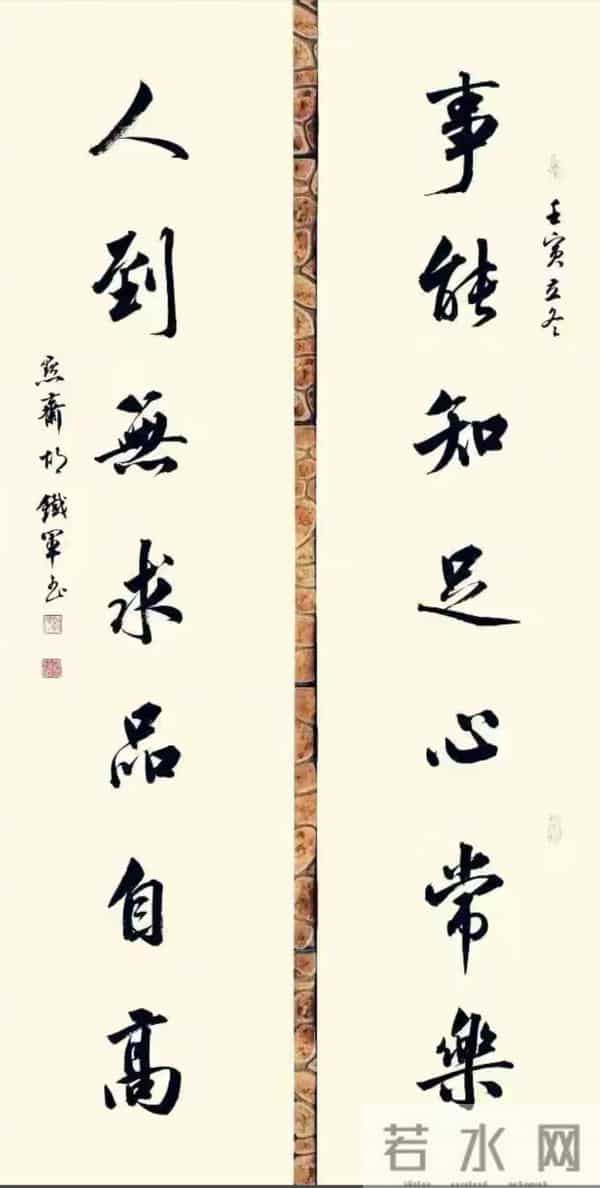 事能知足心常樂
壬寅立冬
人到無求品自高
點齋胡鐵軍書
若水网